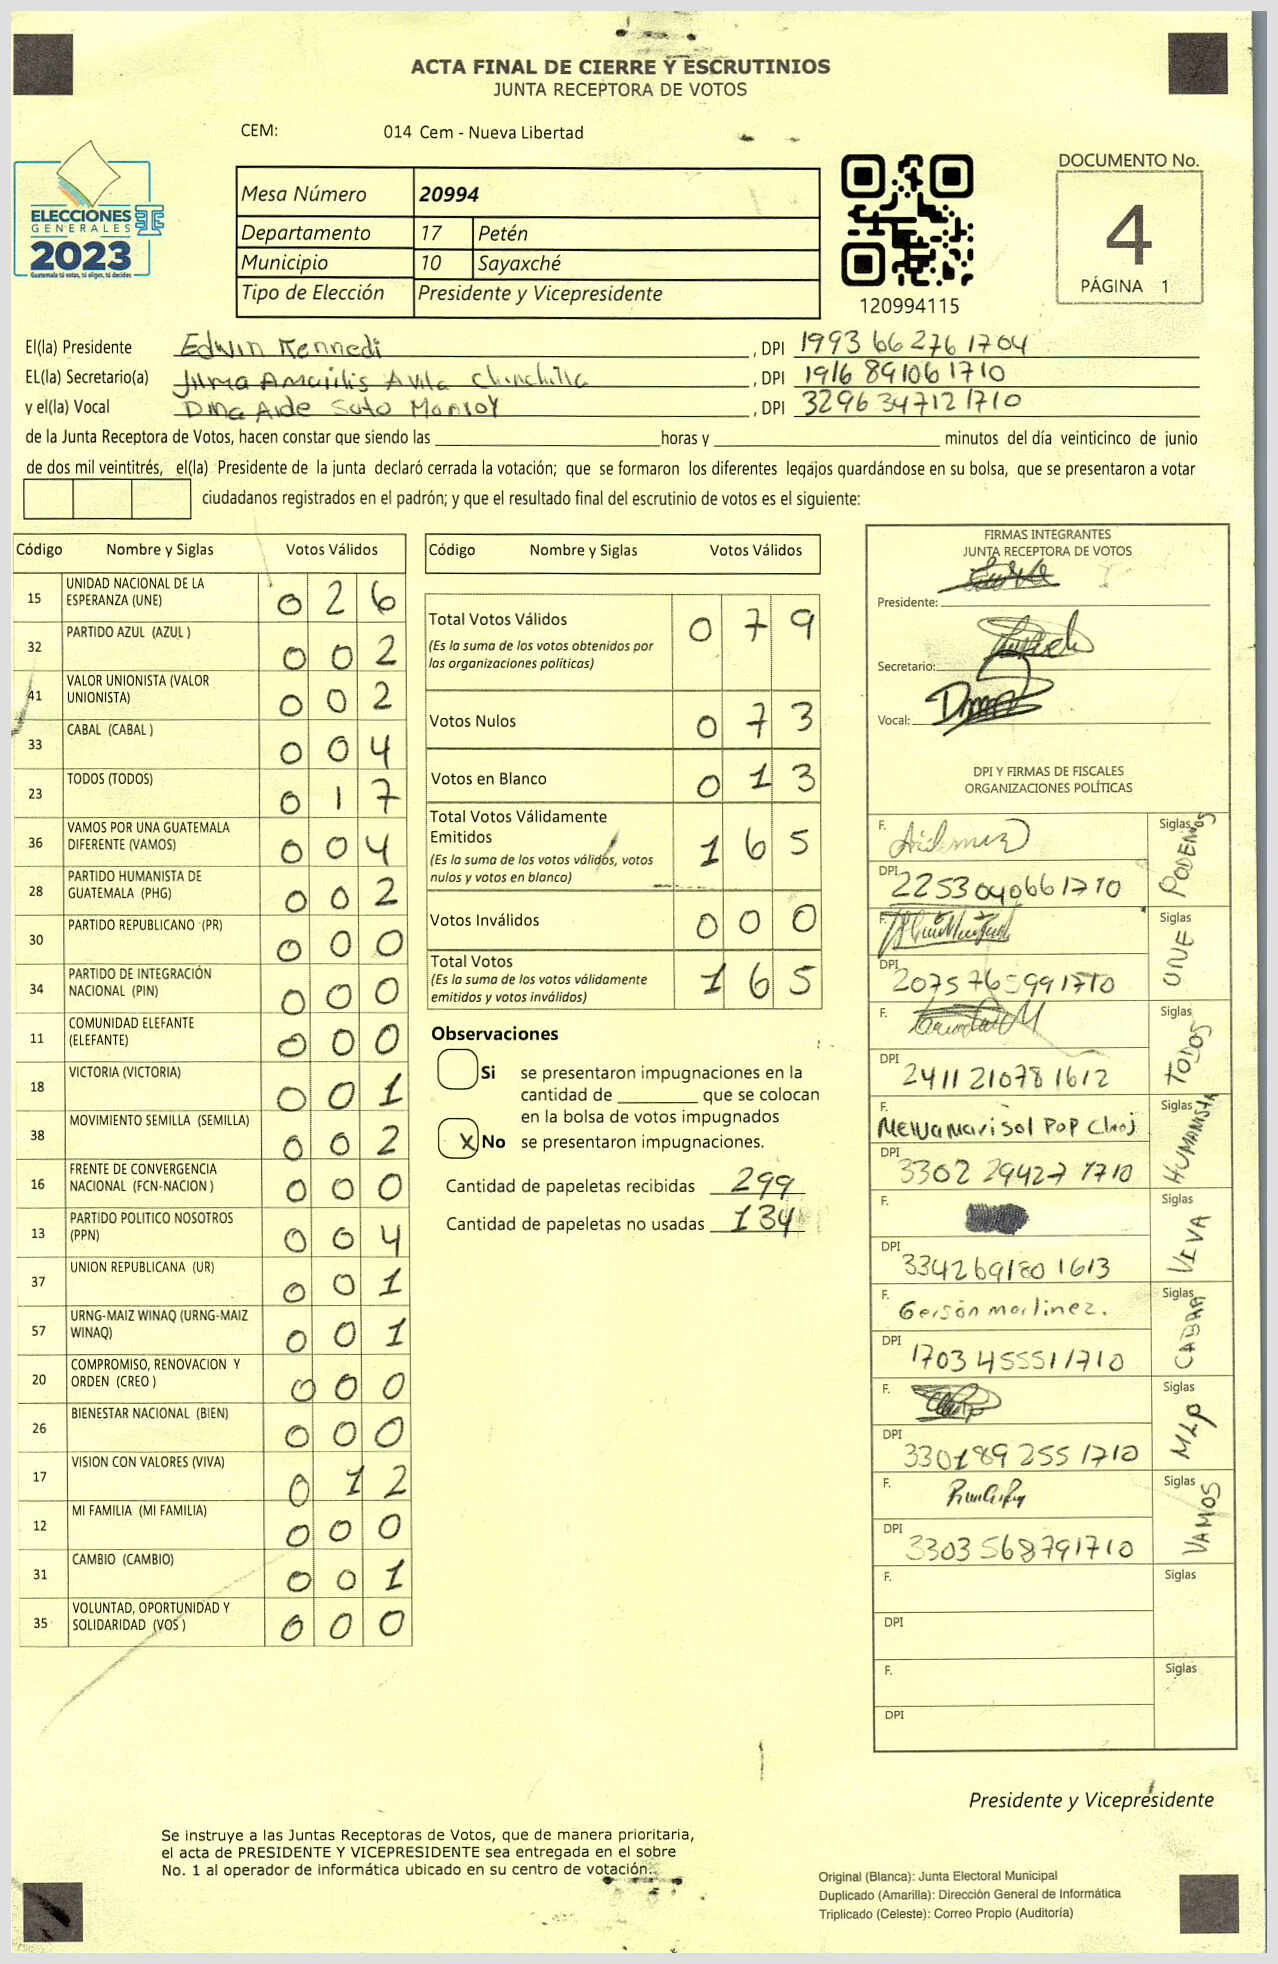 ACTA FINAL DE CIERRE Y ESCRUTINIOS
JUNTA RECEPTORA DE VOTOS
CEM: 014 Cem - Nueva Libertad
ELECCIONES
GENERALES
2023
Guatemala tú votas, tú eliges, tú decides
Mesa Número 20994
Departamento 17 Petén
Municipio 10 Sayaxché
Tipo de Elección Presidente y Vicepresidente
120994115
DOCUMENTO No.
4
PÁGINA 1
El(la) Presidente Edwin Kennedi , DPI 1993 66 276 1704
EL(la) Secretario(a) Amarilis Avila Chinchilla , DPI 1916 89106 1710
y el(la) Vocal Dina Aide Soto Monroy , DPI 3296 34712 1710
de la Junta Receptora de Votos, hacen constar que siendo las horas y minutos del día veinticinco de junio
de dos mil veintitrés, el(la) Presidente de la junta declaró cerrada la votación; que se formaron los diferentes legajos guardándose en su bolsa, que se presentaron a votar
ciudadanos registrados en el padrón; y que el resultado final del escrutinio de votos es el siguiente:
Código Nombre y Siglas Votos Válidos
15 UNIDAD NACIONAL DE LA ESPERANZA (UNE) 0 2 6
32 PARTIDO AZUL (AZUL ) 0 0 2
41 VALOR UNIONISTA (VALOR UNIONISTA) 0 0 2
33 CABAL (CABAL ) 0 0 4
23 TODOS (TODOS) 0 1 7
36 VAMOS POR UNA GUATEMALA DIFERENTE (VAMOS) 0 0 4
28 PARTIDO HUMANISTA DE GUATEMALA (PHG) 0 0 2
30 PARTIDO REPUBLICANO (PR) 0 0 0
34 PARTIDO DE INTEGRACIÓN NACIONAL (PIN) 0 0 0
11 COMUNIDAD ELEFANTE (ELEFANTE) 0 0 0
18 VICTORIA (VICTORIA) 0 0 1
38 MOVIMIENTO SEMILLA (SEMILLA) 0 0 2
16 FRENTE DE CONVERGENCIA NACIONAL (FCN-NACION ) 0 0 0
13 PARTIDO POLITICO NOSOTROS (PPN) 0 0 4
37 UNION REPUBLICANA (UR) 0 0 1
57 URNG-MAIZ WINAQ (URNG-MAIZ WINAQ) 0 0 1
20 COMPROMISO, RENOVACION Y ORDEN (CREO ) 0 0 0
26 BIENESTAR NACIONAL (BIEN) 0 0 0
17 VISION CON VALORES (VIVA) 0 1 2
12 MI FAMILIA (MI FAMILIA) 0 0 0
31 CAMBIO (CAMBIO) 0 0 1
35 VOLUNTAD, OPORTUNIDAD Y SOLIDARIDAD (VOS ) 0 0 0
Código Nombre y Siglas Votos Válidos
Total Votos Válidos 0 7 9
(Es la suma de los votos obtenidos por
las organizaciones políticas)
Votos Nulos 0 7 3
Votos en Blanco 0 1 3
Total Votos Válidamente
Emitidos 1 6 5
(Es la suma de los votos válidos, votos
nulos y votos en blanco)
Votos Inválidos 0 0 0
Total Votos 1 6 5
(Es la suma de los votos válidamente
emitidos y votos inválidos)
Observaciones
Si se presentaron impugnaciones en la
cantidad de que se colocan
en la bolsa de votos impugnados
X No se presentaron impugnaciones.
Cantidad de papeletas recibidas 299
Cantidad de papeletas no usadas 134
FIRMAS INTEGRANTES
JUNTA RECEPTORA DE VOTOS
Presidente:
Secretario:
Vocal:
DPI Y FIRMAS DE FISCALES
ORGANIZACIONES POLÍTICAS
F. Siglas PODEMOS
DPI 2253040661710
F. Siglas UNE
DPI 2075 765991710
F. Siglas TODOS
DPI 2411 21078 1612
F. Marisol Pop Siglas HUMANISTA
DPI 3302 29427 1710
F. Siglas VIVA
DPI 3342691801613
F. Gerson martinez. Siglas
DPI 1703 45551 1710
F. Siglas MLP
DPI 330189 2551710
F. Siglas VAMOS
DPI 3303 568791710
F. Siglas
DPI
F. Siglas
DPI
Presidente y Vicepresidente
Se instruye a las Juntas Receptoras de Votos, que de manera prioritaria,
el acta de PRESIDENTE Y VICEPRESIDENTE sea entregada en el sobre
No. 1 al operador de informática ubicado en su centro de votación.
Original (Blanca): Junta Electoral Municipal
Duplicado (Amarilla): Dirección General de Informática
Triplicado (Celeste): Correo Propio (Auditoría)